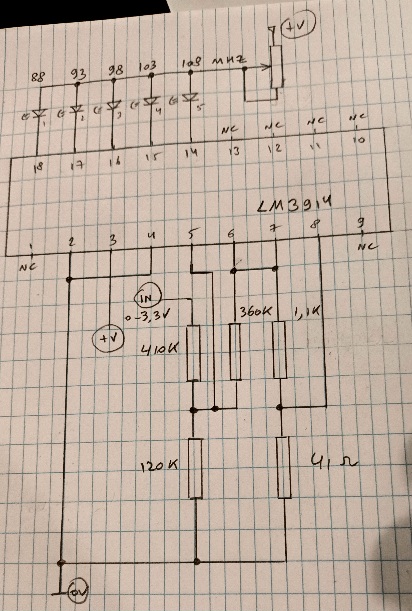 +V
88 93 98 103 108 MHZ
1 2 3 4 5
NC NC NC NC
18 17 16 15 14 13 12 11 10
LM3914
1 2 3 4 5 6 7 8 9
NC NC
IN
0-3,3V
+V
410K 360K 1,1K
120K 41 Ω
0V